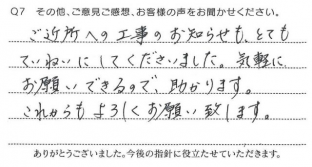 Q7 その他、ご意見ご感想、お客様の声をお聞かせください。
ご近所への工事のお知らせも、とても
ていねいにしてくださいました。気軽に
お願いできるので、助かります。
これからもよろしくお願い致します。
ありがとうございました。今後の指針に役立たせていただきます。